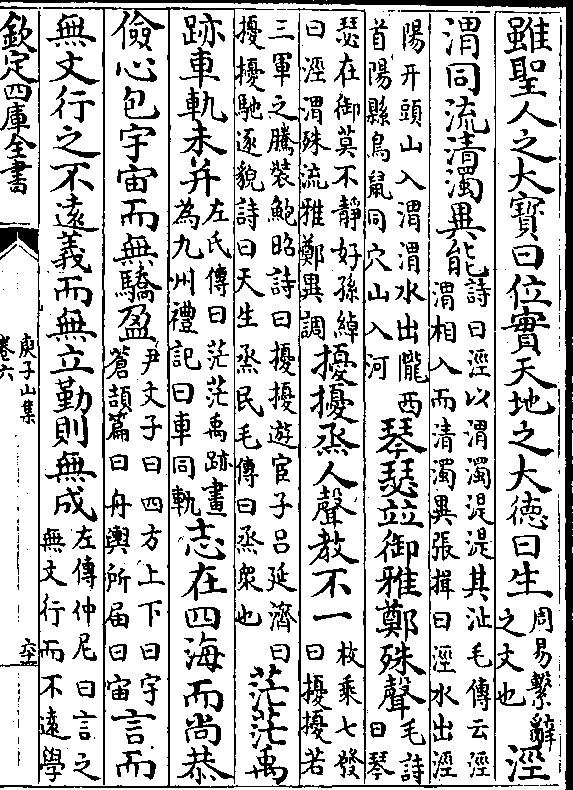 雖聖人之大寳曰位實天地之大德曰生周易繫辭之文也涇
渭同流清濁異能詩曰涇以渭濁湜湜其沚毛傳云涇渭相入而清濁異張揖曰涇水出涇
陽开頭山入渭渭水出隴西首陽縣鳥鼠同穴山入河琴瑟竝御雅鄭殊聲毛詩曰琴
瑟在御莫不靜好孫綽曰涇渭殊流雅鄭異調擾擾烝人聲教不一枚乘七發曰擾擾若
三軍之騰裝鮑昭詩曰擾擾遊宦子呂延濟曰擾擾馳逐貌詩曰天生烝民毛傳曰烝衆也茫茫禹
跡車軌未并左氏傳曰茫茫禹跡畫為九州禮記曰車同軌志在四海而尚恭
儉心包宇宙而無驕盈尹文子曰四方上下曰宇蒼頡篇曰舟輿所屆曰宙言而
無文行之不遠義而無立勤則無成左傳仲尼曰言之無文行而不遠學
欽定四庫全書
庾子山集
卷六